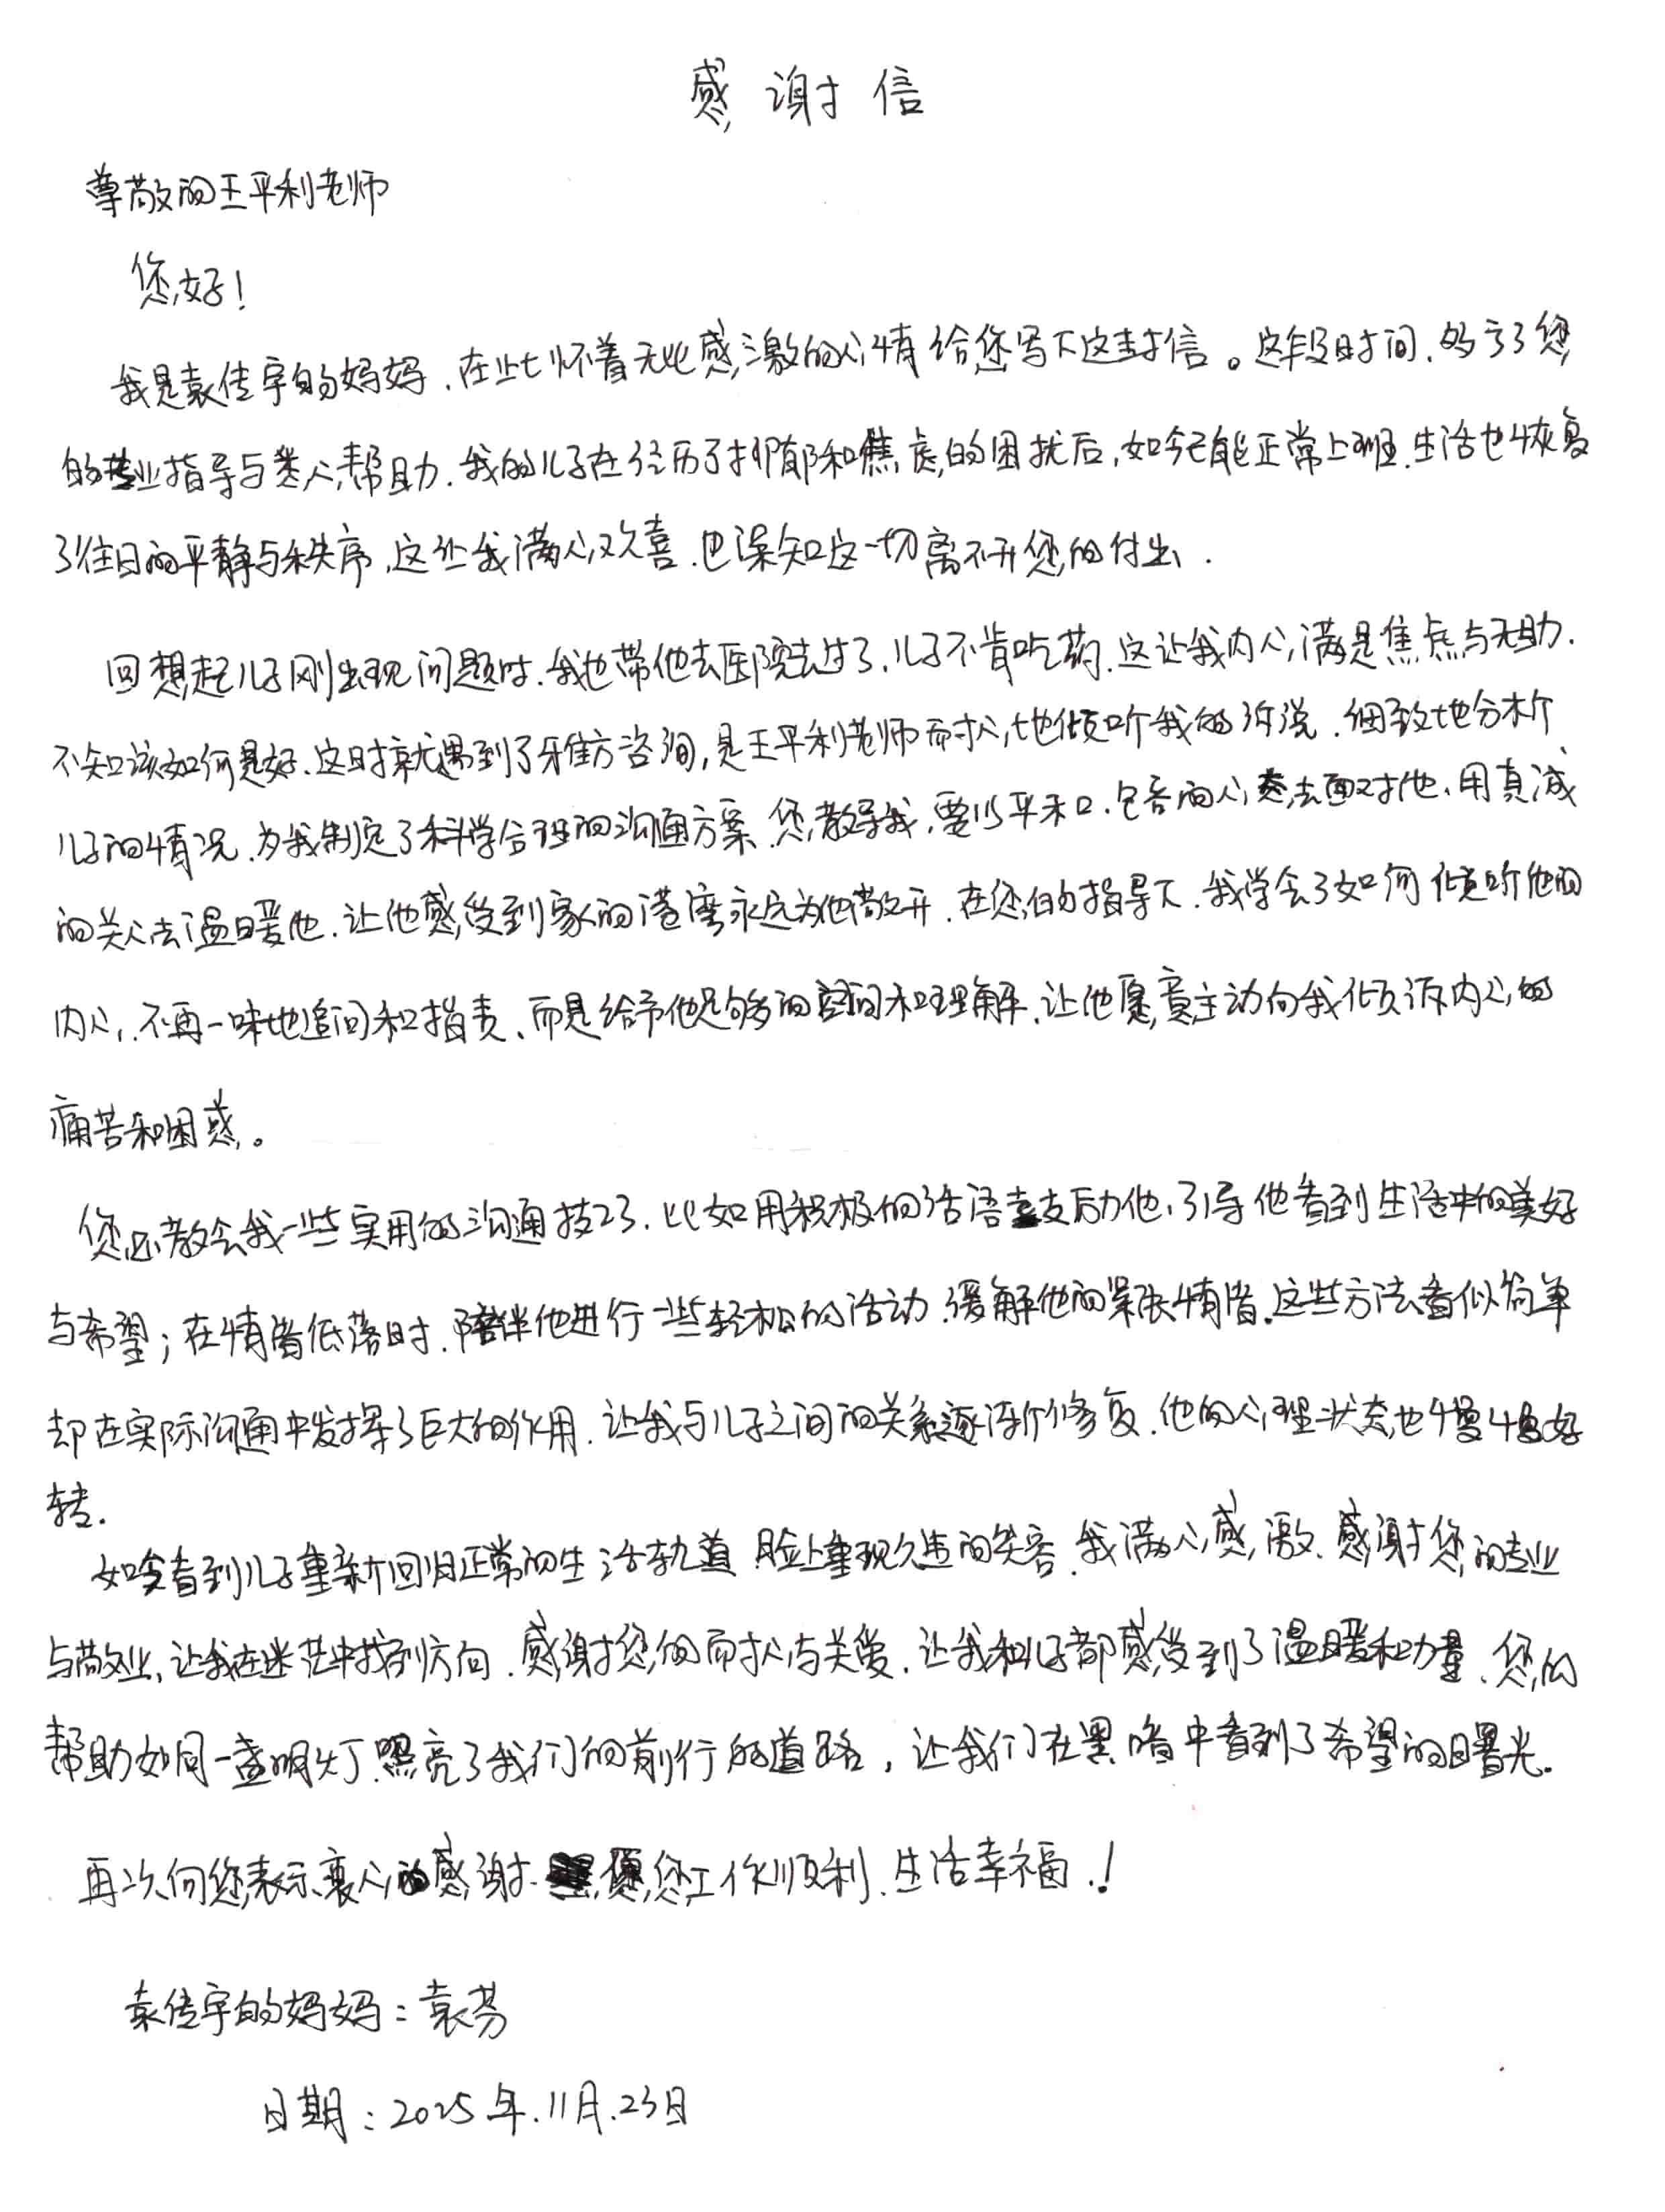 感谢信
尊敬的王平利老师
您好!
我是袁传宇的妈妈.在此怀着无比感激的心情给您写下这封信。这段时间.多亏了您
的专业指导与类心帮助.我的儿子在经历了抑郁和焦虑的困扰后,如今已能正常上班.生活也恢复
了往日的平静与秩序,这让我满心欢喜.也深知这一切离不开您的付出.
回想起儿子刚出现问题时.我也带他去医院去过了,儿子不肯吃药.这让我内心满是焦虑与无助.
不知该如何是好.这时就遇到了雅方咨询,是王平利老师耐心地倾听我的诉说.细致地分析
儿子的情况.为我制定了科学合理的沟通方案.您教导我,要以平和.包容的心态去面对他.用真诚
的关心去温暖他.让他感受到家的港湾永远为他敞开.在您的指导下.我学会了如何倾听他的
内心.不再一味地追问和指责、而是给予他足够的空间和理解.让他愿意主动向我倾诉内心的
痛苦和困惑。
您还教会我一些实用的沟通技巧.比如用积极的话语去鼓励他,引导他看到生活中的美好
与希望;在情绪低落时.陪伴他进行一些轻松的活动.缓解他的紧张情绪.这些方法看似简单
却在实际沟通中发挥了巨大的作用.让我与儿子之间的关系逐渐修复.他的心理状态也慢慢好
转.
如今看到儿子重新回归正常的生活轨道 脸上重现久违的笑容.我满心感激.感谢您的专业
与敬业,让我在迷茫中找到方向.感谢您的耐心与关爱.让我和儿子都感受到了温暖和力量.您的
帮助如同一盏明灯.照亮了我们的前行的道路,让我们在黑暗中看到了希望的曙光.
再次向您表示衷心的感谢.愿您工作顺利.生活幸福.!
袁传宇的妈妈:袁芬
日期:2025年.11月.23日